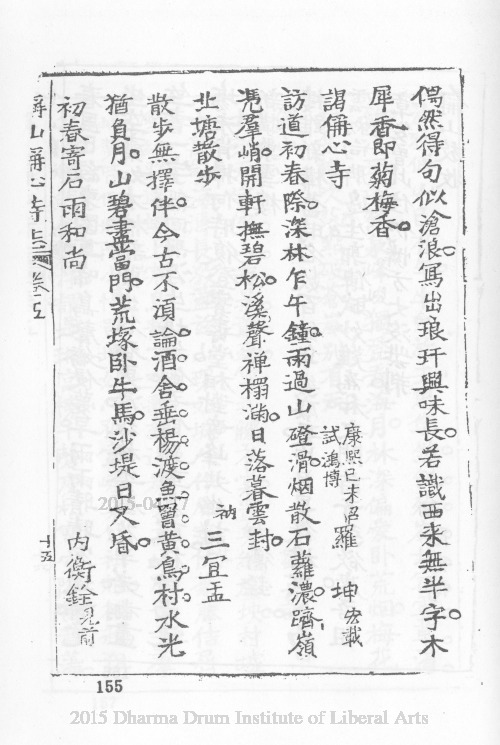 偶然得句似滄浪。寫出琅玕興味長。若識西來無半字。木
犀香即菊梅香。
謁偁心寺
康熙己未召試鴻博 羅坤 宏載
訪道初春際。深林乍午鐘。雨過山磴滑。烟散石蘿濃。躋嶺
凴羣峭。開軒撫碧松。溪聲禅榻滿。日落暮雲封。
北塘散步
衲 三宜盂
散步無擇伴。今古不湏論。酒舍垂楊渡。魚罾黃鳥村。水光
猶負月。山碧盡當門。荒塚卧牛馬。沙堤日又昏。
初春寄石雨和尚
内衡銓 見前
偁山偁心寺志 卷五
十五
155
2015-04-17
2015 Dharma Drum Institute of Liberal Arts